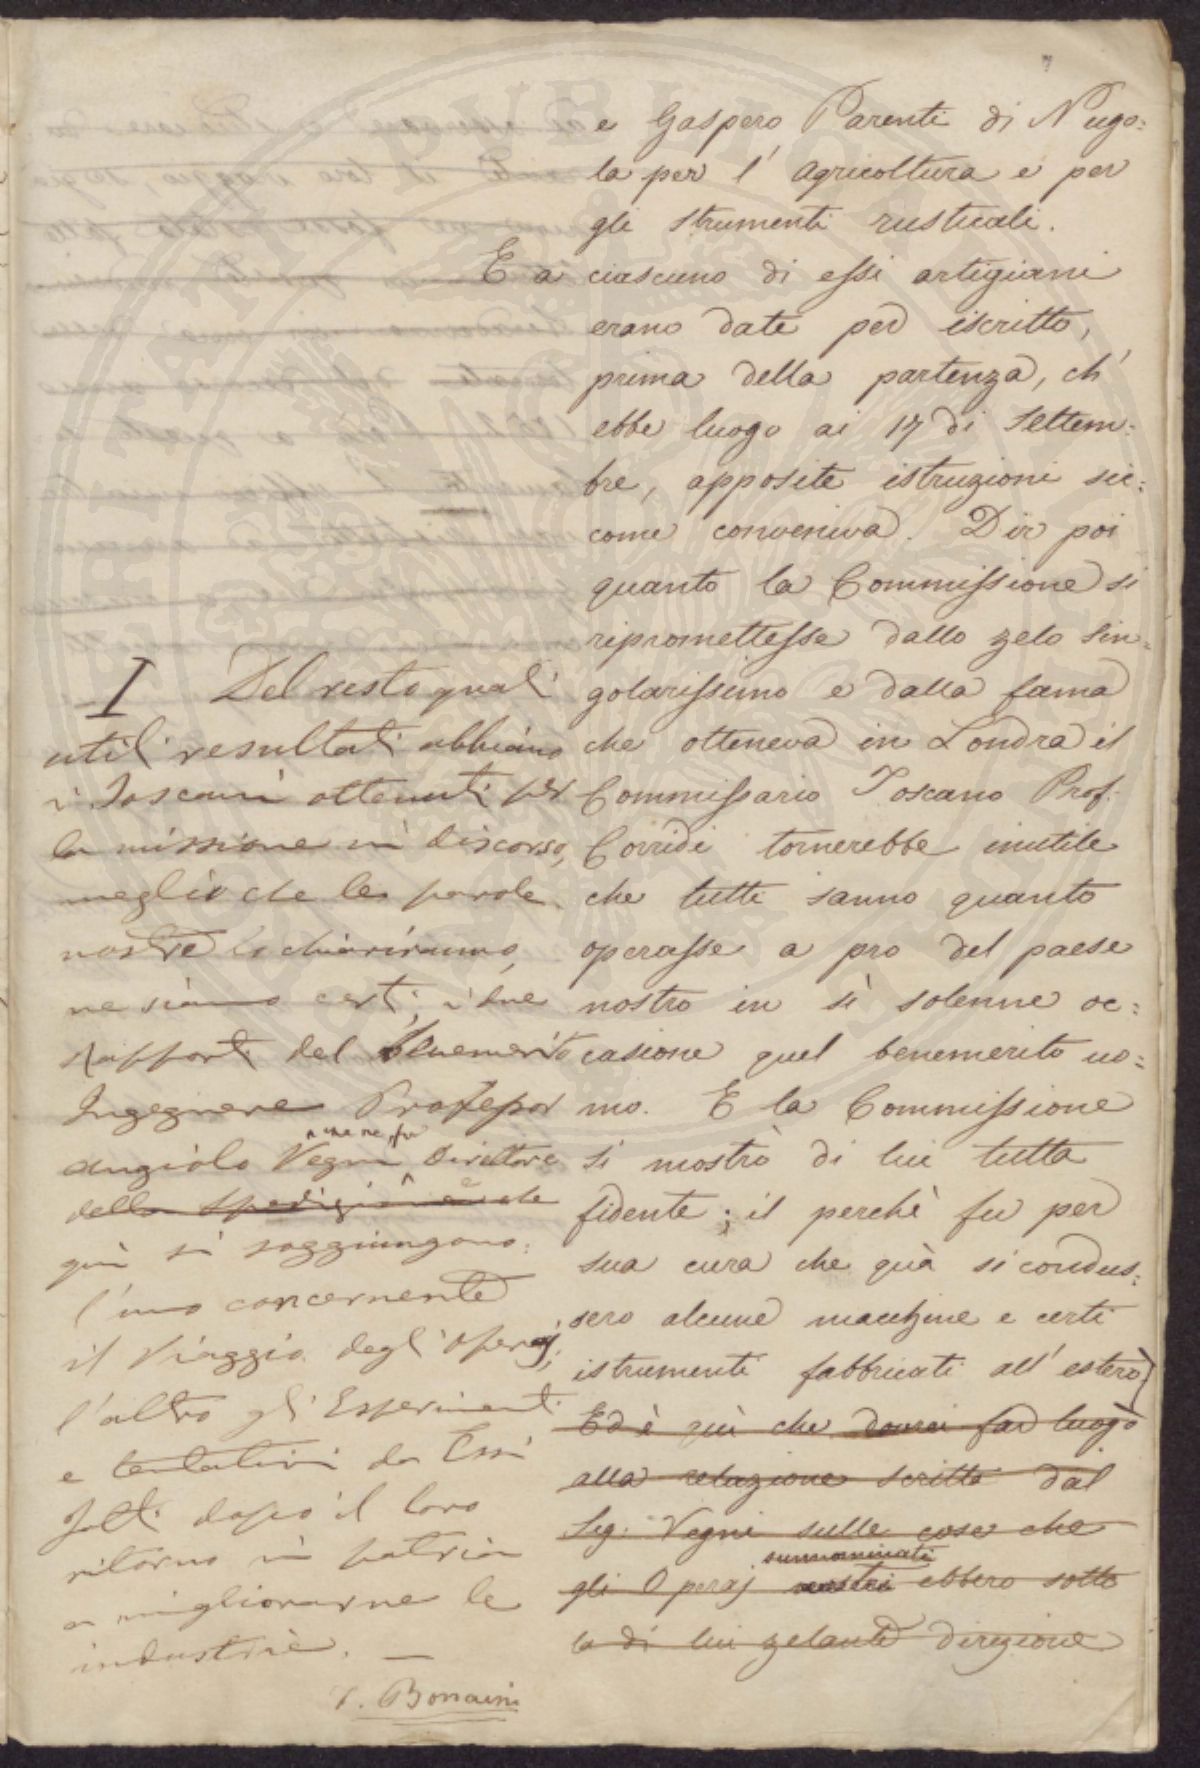 7
e Gaspero Parenti di Nugo:
la per l' agricoltura e per
gli strumenti rusticali.
E a ciascuno di essi artigiani
erano date per iscritto,
prima della partenza, ch'
ebbe luogo ai 17 di Settem:
bre, apposite istruzioni sic:
come conveniva. Dir poi
quanto la Commissione si
ripromettesse dallo zelo sin:
golarissimo e dalla fama
che otteneva in Londra il
Commissario Toscano Prof.
Corridi tornerebbe inutile
che tutti sanno quanto
operasse a pro del paese
nostro in sì solenne oc:
casione quel benemerito uo:
mo. E la Commissione
si mostrò di lui tutta
fidente; il perchè fu per
sua cura che quà si condus:
sero alcune macchine e certi
istrumenti fabbricati all' estero
Ed è quì che dovrei far luogo
alla relazione scritta dal
Sig. Vegni sulle cose che
sunnominati
gli Operaj nostri ebbero sotto
la di lui zelante direzione
I Del resto quali
utili resultati abbiano
i Toscani ottenuti per
la missione in discorso,
meglio che le parole
nostre lo chiariranno,
ne siamo certi, i due
rapporti del benemerito
Ingegnere Professor
Angiolo Vegni Direttore
della spedizione che
quì si soggiungono:
l'uno concernente
il Viaggio degli Operaj,
l'altro gli Esperimenti
e tentativi da Essi
fatti dopo il loro
ritorno in patria
a migliorarne le
industrie.
F. Bonaini